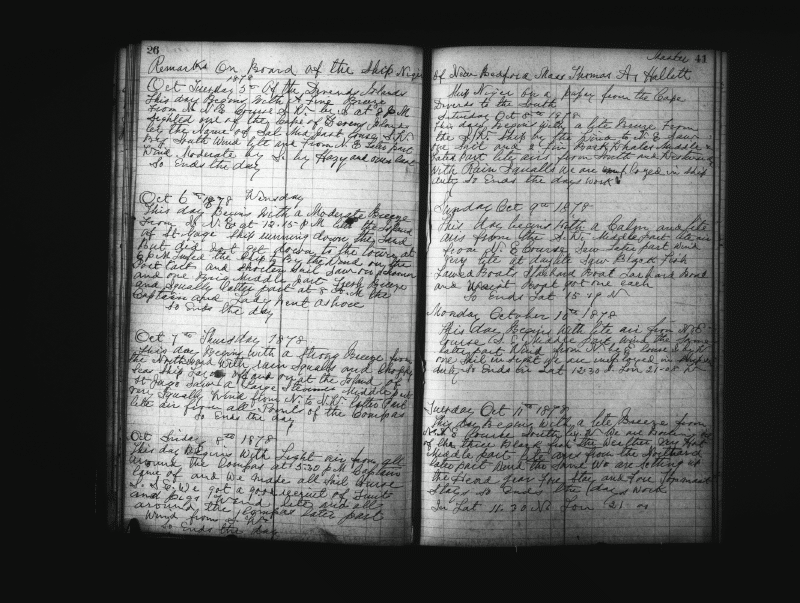 26
Remarks On Board of the Ship Niger
1878
Oct Tuesday 5th Of the Deverds Islands
This day Begins With A Fine Breeze
from N.E. Course S.W. by S at 8 P.M
Sighted one of the Cape of Deverd Island
by the Name of Sal Mid part Course S.W.
By South Wind lite and from N.E. Later part
Wind Moderate by S. by Hazy and
So Ends the day
Oct 6th 1878 Winsday
This day Begins With a Moderate Breeze
from N.E at 12.15 P.M the Island
of St Jago Ship running down the Land
but did not get down to the town at
6 P.M the Ship By the Wind on the
Port tack and Shorten Sail Saw on Schooner
and one Brig Middle part Fresh Breeze
and Squally latter part at 8 A.M the
Captain and Lady Went ashore
So Ends the day
Oct 7th Thursday 1878
This day Begins With a Strong Breeze from
the Northward With rain Squalls and Choppy
Sea Ship off and on at the Island of
St Jago Saw a Large Steamer Middle part
Squally Wind from N. to N.W. latter Part
lite air from all Points of the Compas
So Ends the day
Oct Friday 8th 1878
This day Begins With Light air from all
around the Compas at 5.30 P.M Captain
Came of and We made all Sail Course
S.S.E. We got a good recruit of Fruits
and pigs Wind lite and all
around the Compas later part
Wind from
So Ends the day
Master 41
of New Bedford Mass Thomas A, Hallett
Ship Niger on a from the Cape
Deverds to the South
Saturday Oct 8th 1878
This day Begins With a lite Breeze from
the Ship by the Wind to S.E Saw
one Sail and 2 Fin Back Whales Middle &
later part lite airs from South and Western
With Rain Squalls We are employed in Ship
duty So Ends the days Work
Sunday Oct 9th 1878
This day begins With a Calm and lite
airs from the Middle part the air
from N.E Course later part Wind
Very lite at daylite Saw Black Fish
Lowed Boats Starboard Boat Larboard Boat
and Waist Boat got one each
So Ends Lat 15 10 N
Monday October 10th 1878
This day Begins With lite air from N.E
Course S.E. Middle part Wind the same
Latter part Wind from N.E Course South
one Sail in sight We are employed in Ships
duty So Ends in Lat 12.30 N Lon 21
Tuesday Oct 11th 1878
This day Begins With a lite Breeze from
Course South We are
of the three Black fish the Weather Very Hot
Middle part lite airs from the Northard
later part Wind the Same We are setting up
the Head gear Fore Stay and Fore Topmast
Stays So Ends the days Work
In Lat 11.30 N Lon 21